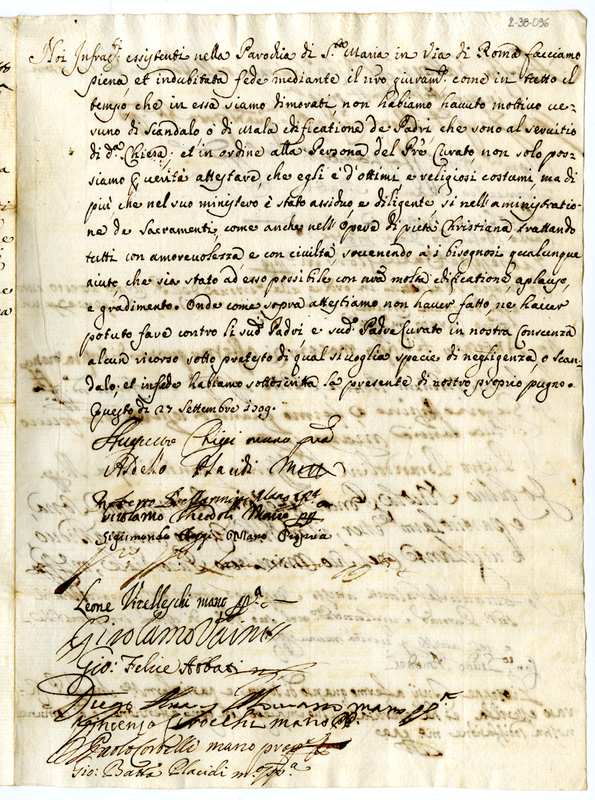 2-38-096
Noi Infra.tti essistenti nella Parochia di S.ta Maria in Via di Roma facciamo
piena, et indubitata fede mediante il nr̃o giuram.to come in tutto il
tempo, che in essa siamo dimorati, non habiamo havuto motivo ve-
runo di scandalo o di mala edificatione de Padri che sono al servitio
di d.ta Chiesa; et in ordine alla Persona del Pr̃e Curato non solo pos-
siamo p verità attestare, che egli è d'ottimi e religiosi costumi, ma di
più che nel suo ministero è stato assiduo e diligente, sì nell'aministratio-
ne de Sacramenti, come anche nell'Opera di pietà Christiana, trattando
tutti con amorevolezza e con civiltà, sovenendo à i bisognosi qualunque
aiuto che sia stato ad esso possibile con nr̃a molta edificatione, aplauso,
e gradimento. Onde come sopra attestiamo non haver fatto, ne haver
potuto fare contro li sud.i Padri e sud.o Padre Curato in nostra Conscenza
alcun ricorso sotto pretesto di qual si voglia specie di negligenza, o scan-
dalo, et in fede habiamo sottoscritta la presente di nostro proprio pugno.
Questo dì 27 Settembre 1709.
Chigi mano
Placidi
Girolamo Theodoli Mano pp
Sigismondo Mano Propria
Leone Vitelleschi mano pp.a
Girolamo Vaini
Gio: Felice Abbati
Diego mano pp.a
mano pp.
Paolo mano propa
Gio: Batta Placidi m.o pp.a